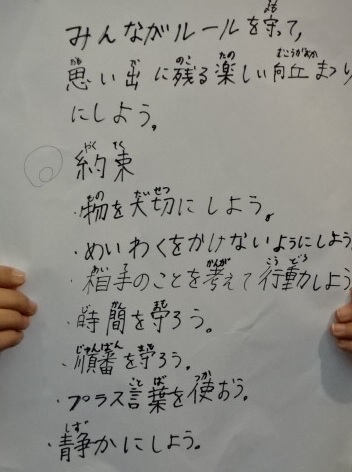 みんながルールを守って、
思い出に残る楽しい向丘まつり
にしよう。
約束
・物を大切にしよう。
・めいわくをかけないようにしよう
・相手のことを考えて行動しよう
・時間を守ろう。
・順番を守ろう。
・プラス言葉を使おう。
・静かにしよう。